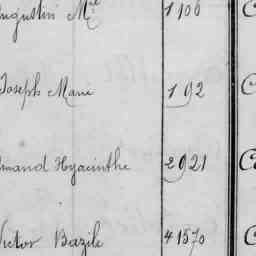 ugustin Mel 1100
Joseph Marie 192
mand Hyacinthe 2921
Victor Bazile 41570